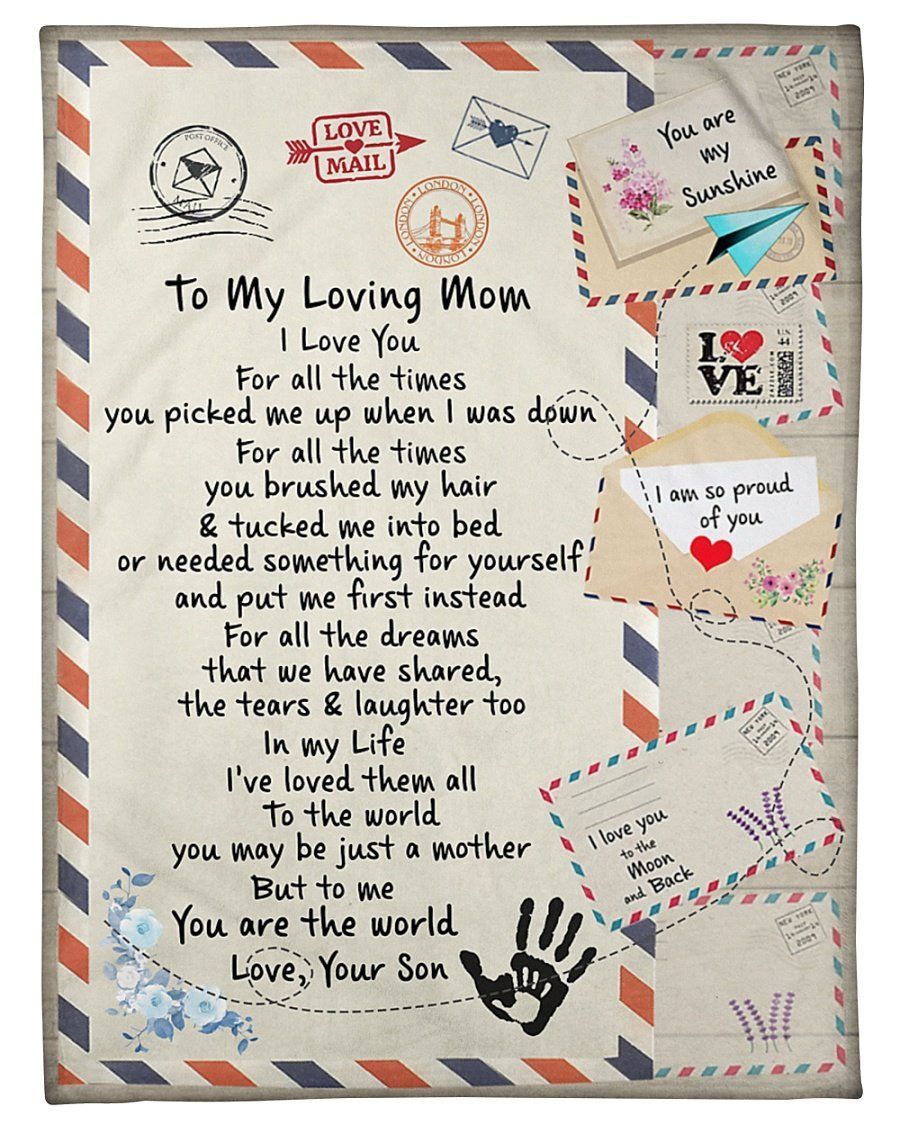 POST OFFICE
MAIL
LOVE
MAIL
LONDON • LONDON • LONDON • LONDON
To My Loving Mom
I Love You
For all the times
you picked me up when I was down
For all the times
you brushed my hair
& tucked me into bed
or needed something for yourself
and put me first instead
For all the dreams
that we have shared,
the tears & laughter too
In my Life
I've loved them all
To the world
you may be just a mother
But to me
You are the world
Love, Your Son
NEW YORK
2009
You are
my
Sunshine
2009
LOVE
U.S.
44
ZAZZLE.COM
I am so proud
of you
NEW YORK
2009
I love you
to the
Moon
and Back
NEW YORK
2009